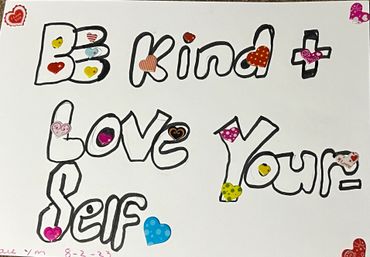 BE Kind +
Love Your=
Self
8-2-23